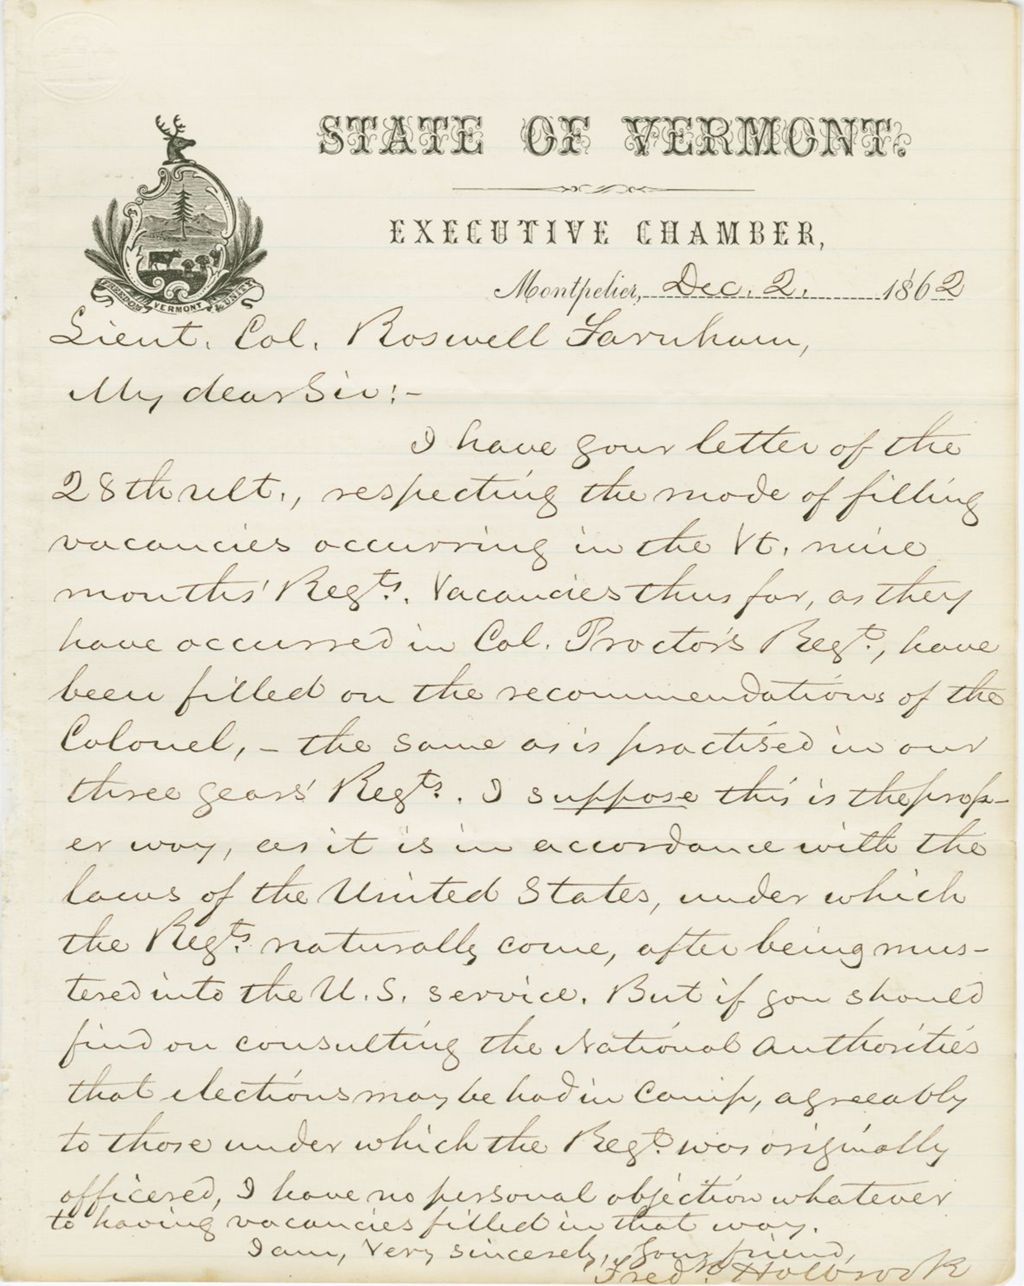 STATE OF VERMONT.
EXECUTIVE CHAMBER,
Montpelier, Dec. 2. 1862
VERMONT
UNITY
Lieut. Col. Roswell Farnham,
My dear Sir:-
I have your letter of the
28th ult., respecting the mode of filling
vacancies occurring in the Vt. nine
months' Regts. Vacancies thus far, as they
have occurred in Col. Proctor's Regt., have
been filled on the recommendations of the
Colonel, - the same as is practised in our
three years' Regts. I suppose this is the prop-
er way, as it is in accordance with the
laws of the United States, under which
the Regts. naturally come, after being mus-
tered into the U.S. service. But if you should
find on consulting the National Authorities
that elections may be had in Camp, agreeably
to those under which the Regt. was originally
officered, I have no personal objection whatever
to having vacancies filled in that way.
I am, Very sincerely, Your friend,
Fred. Holbrook